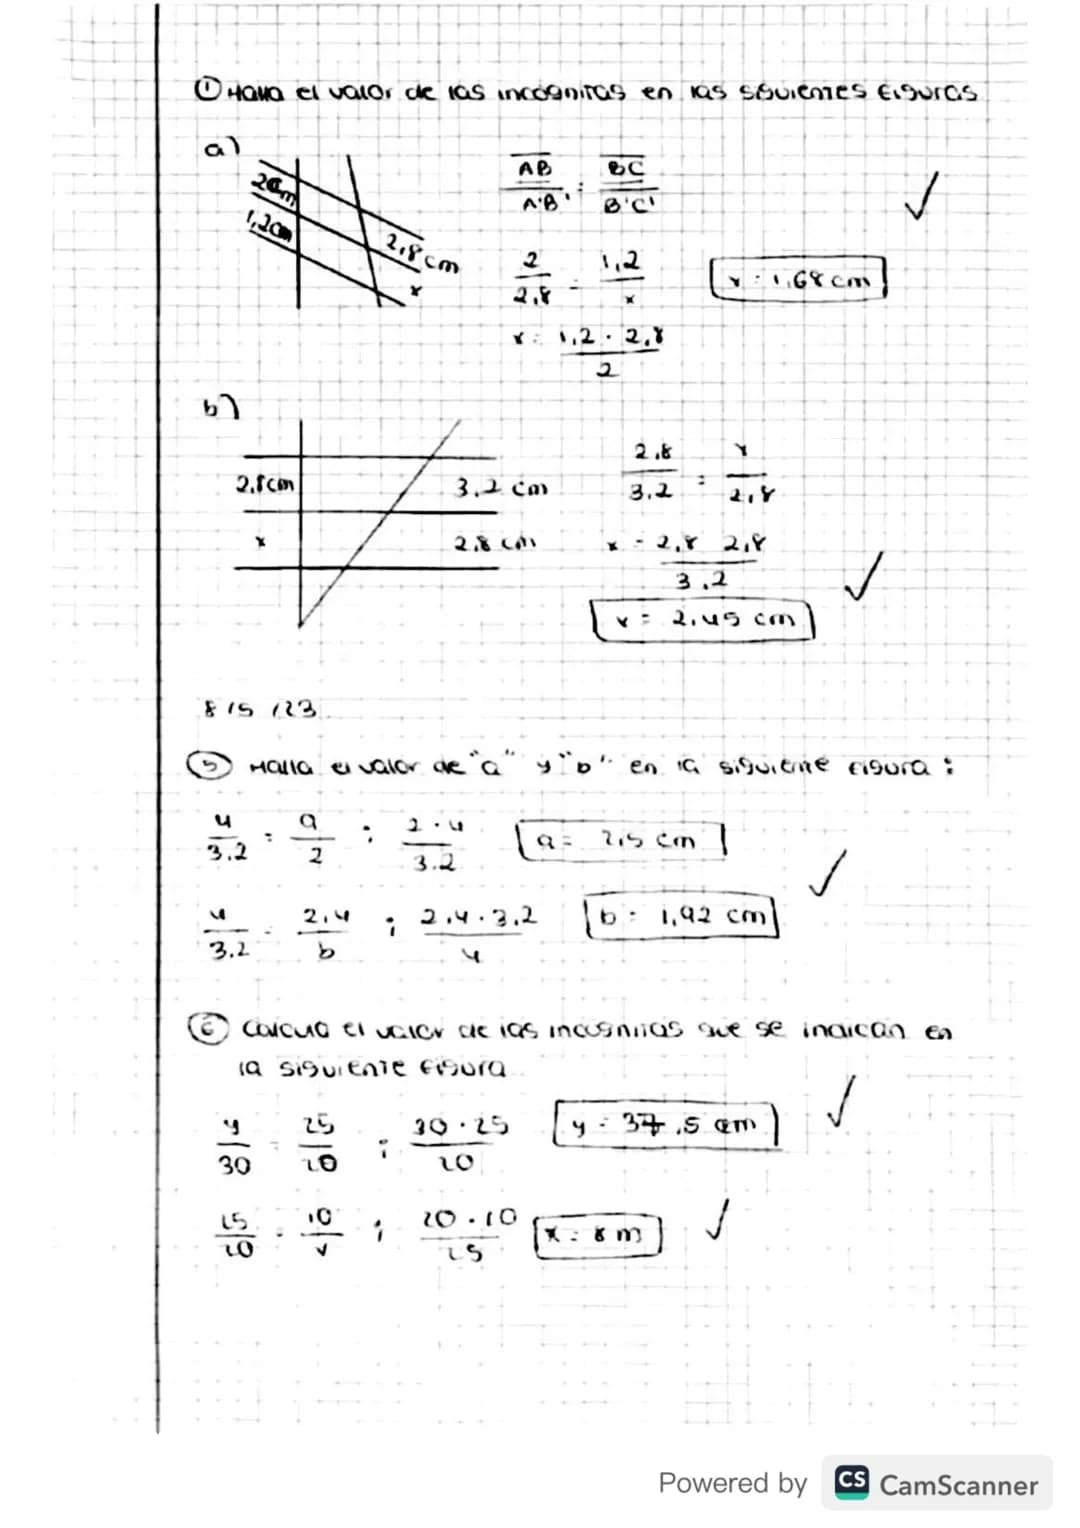 ① Halla el valor de las incógnitas en las siguientes figuras
a)
2cm
1,2cm
2,8 cm
x
AB/A'B' = BC/B'C'
2/2,8 = 1,2/x
x = 1,2 · 2,8/2
x = 1,68 cm
b)
2,8cm
x
3,2 cm
2,8 cm
2,8/3,2 = x/2,8
x = 2,8 2,8/3,2
x = 2,45 cm
8/5/23
⑤ Halla el valor de "a" y "b" en la siguiente figura:
4/3.2 = a/2 ; 2·4/3.2
a = 2,5 cm
4/3.2 = 2,4/b ; 2,4·3,2/4
b = 1,92 cm
⑥ Calcula el valor de las incognitas que se indican en
la siguiente figura
y/30 = 25/20 ; 30·25/20
y = 37,5 cm
25/20 = 10/x ; 20·10/25
x = 8 m
Powered by CS CamScanner